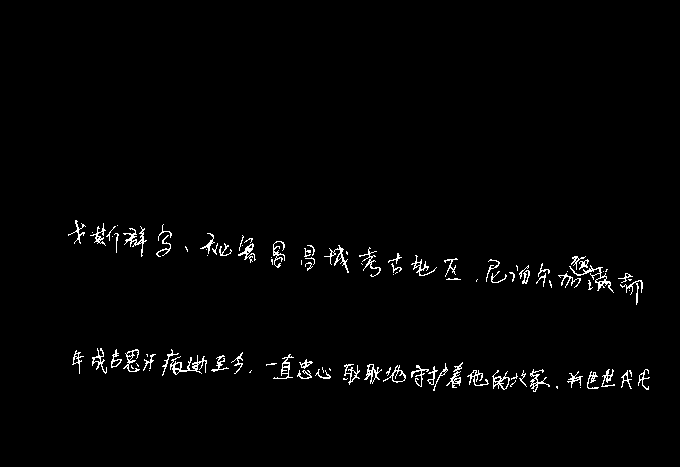 戈斯群岛、秘鲁昌昌城考古地区,尼泊尔加德满都
年成吉思汗病逝至今,一直忠心耿耿地守护着他的陵寝,并世世代代